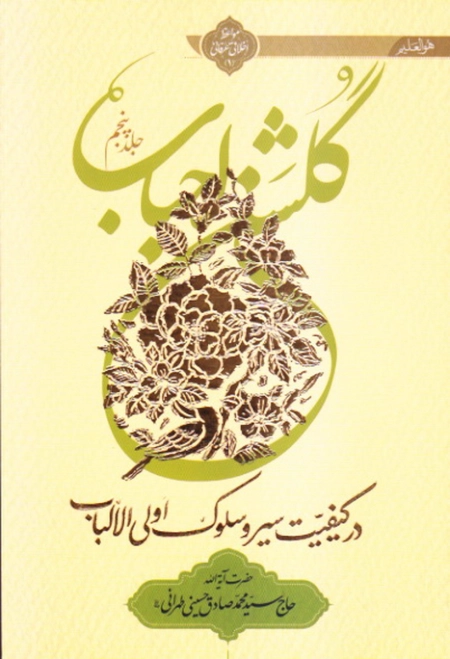 هو العلیم
مواعظ
اخلاقی عرفانی
(۹)
گلشن احباب
جلد پنجم
در کیفیّت سیر و سلوک اولی الألباب
حضرت آیة الله
حاج سیّد محمّد صادق حسینی طهرانی